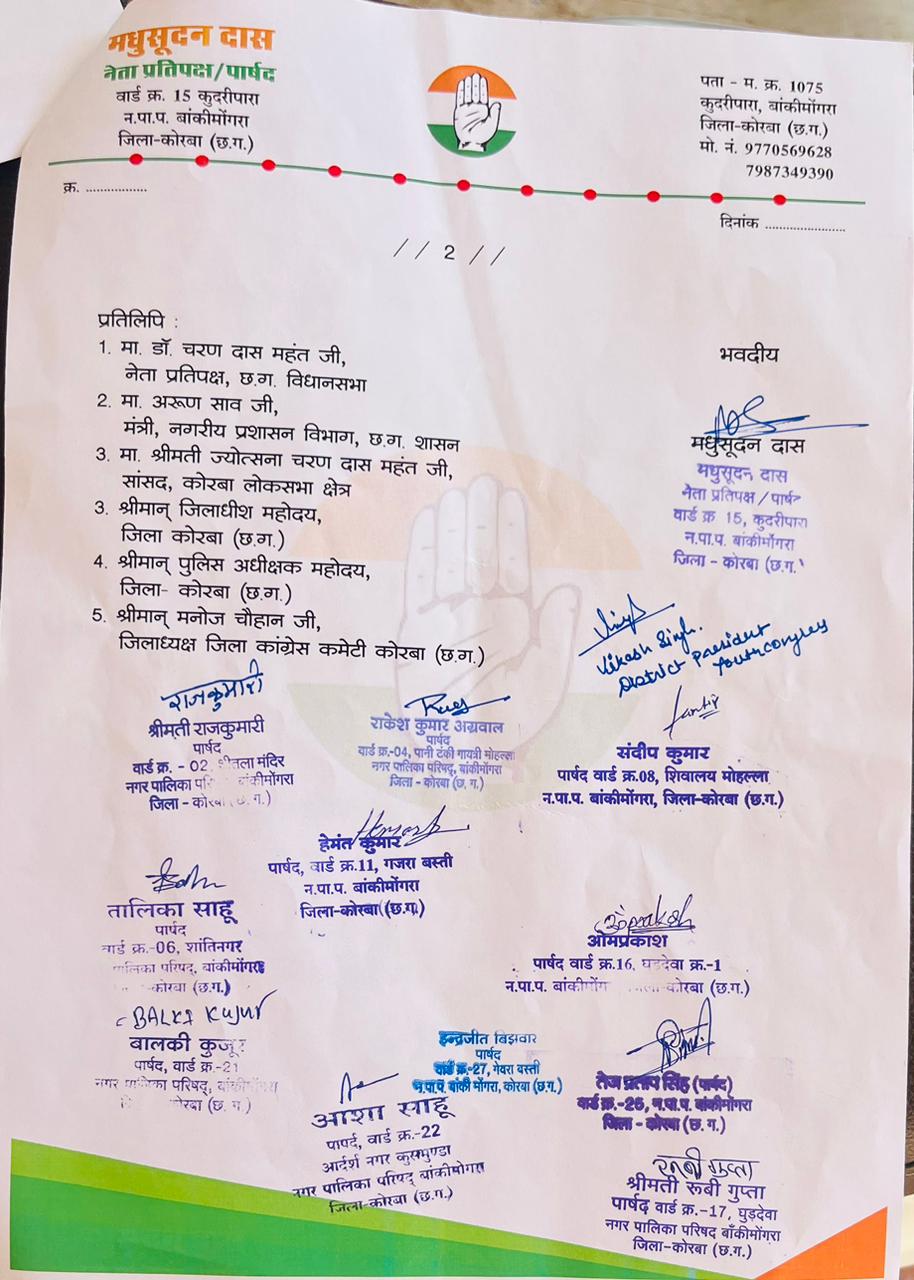 मधुसूदन दास
नेता प्रतिपक्ष/पार्षद
वार्ड क्र. 15 कुदरीपारा
न.पा.प. बांकीमोंगरा
जिला-कोरबा (छ.ग.)
पता - म. क्र. 1075
कुदरीपारा, बांकीमोंगरा
जिला-कोरबा (छ.ग.)
मो. नं. 9770569628
7987349390
क्र. .................
दिनांक ......................
// 2 //
प्रतिलिपि :
1. मा. डॉ. चरण दास महंत जी,
नेता प्रतिपक्ष, छ.ग. विधानसभा
2. मा. अरूण साव जी,
मंत्री, नगरीय प्रशासन विभाग, छ.ग. शासन
3. मा. श्रीमती ज्योत्सना चरण दास महंत जी,
सांसद, कोरबा लोकसभा क्षेत्र
3. श्रीमान् जिलाधीश महोदय,
जिला कोरबा (छ.ग.)
4. श्रीमान् पुलिस अधीक्षक महोदय,
जिला- कोरबा (छ.ग.)
5. श्रीमान् मनोज चौहान जी,
जिलाध्यक्ष जिला कांग्रेस कमेटी कोरबा (छ.ग.)
भवदीय
मधुसूदन दास
मधुसूदन दास
नेता प्रतिपक्ष / पार्षद
वार्ड क्र 15, कुदरीपारा
न.पा.प. बांकीमोंगरा
जिला - कोरबा (छ.ग.
Vikash Singh.
District President
Youth congress
राजकुमारी
श्रीमती राजकुमारी
पार्षद
वार्ड क्र. - 02, शीतला मंदिर
नगर पालिका परि बांकीमोंगरा
जिला - कोरबा (छ. ग.)
राकेश कुमार अग्रवाल
पार्षद
वार्ड क्र.-04, पानी टंकी गायत्री मोहल्ला
नगर पालिका परिषद्, बांकीमोंगरा
जिला - कोरबा (छ. ग.)
संदीप कुमार
पार्षद वार्ड क्र.08, शिवालय मोहल्ला
न.पा.प. बांकीमोंगरा, जिला-कोरबा (छ.ग.)
हेमंत कुमार
पार्षद, वार्ड क्र.11, गजरा बस्ती
न.पा.प. बांकीमोंगरा
जिला-कोरबा (छ.ग.)
तालिका साहू
पार्षद
वार्ड क्र.-06, शांतिनगर
पालिका परिषद्, बांकीमोंगरा
कोरबा (छ.ग.)
Omprakash
ओमप्रकाश
पार्षद वार्ड क्र.16, घुड़देवा क्र.-1
न.पा.प. बांकीमोंग जिला-कोरबा (छ.ग.)
BALKI KUJUR
बालकी कुजूर
पार्षद, वार्ड क्र.-21
नगर पालिका परिषद्, बांकीमोंगरा
कोरबा (छ. ग.)
इन्द्रजीत बिझवार
पार्षद
वार्ड क्र.-27, गेवरा बस्ती
न.पा.प. बांकी मोंगरा, कोरबा (छ.ग.)
तेज प्रताप सिंह (पार्षद)
वार्ड क्र.-26, न.पा.प. बांकीमोंगरा
जिला - कोरबा (छ. ग.)
आशा साहू
पार्षद, वार्ड क्र.-22
आदर्श नगर कुसमुण्डा
नगर पालिका परिषद् बांकीमोंगरा
जिला-कोरबा (छ.ग.)
रूबी गुप्ता
श्रीमती रूबी गुप्ता
पार्षद वार्ड क्र.-17, घुड़देवा
नगर पालिका परिषद बाँकीमोंगरा
जिला-कोरबा (छ.ग.)